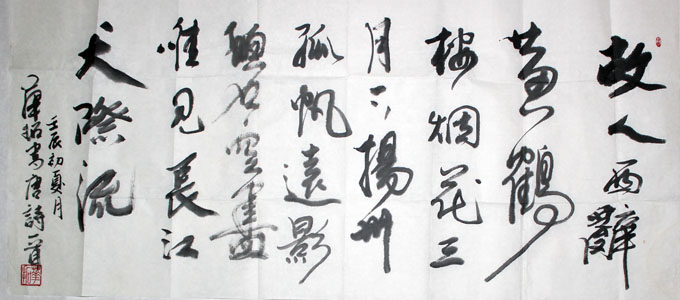 故人西辭
黄鶴
樓烟花三
月下揚州
孤帆遠影
碧空盡
唯見長江
天際流
壬辰初夏月
书唐詩一首